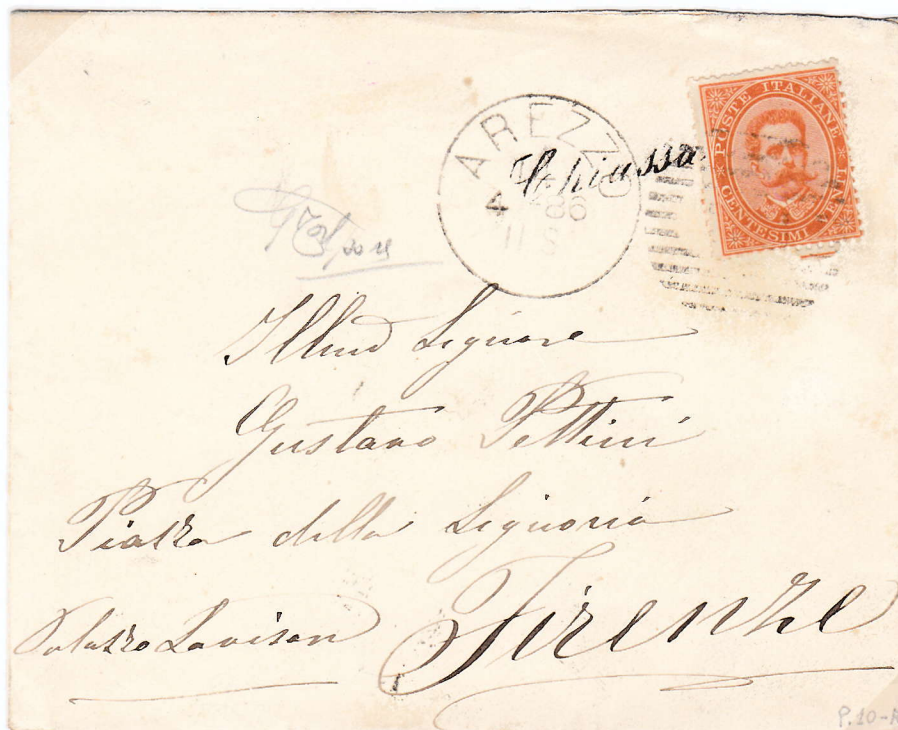 POSTE ITALIANE
CENTESIMI VENTI
AREZZO
4 86
11 S
Chiassa
Illmo Signore
Gustavo Pettini
Piazza della Signoria
Palazzo Lavison
Firenze
P.10-A